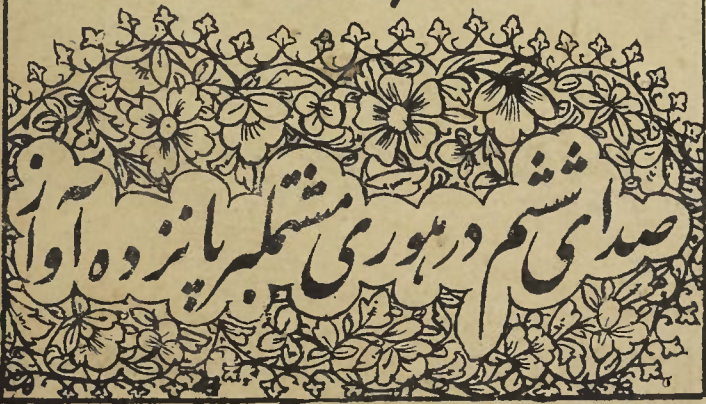 صدای ششم در هوری مشتملبر پانزده آواز